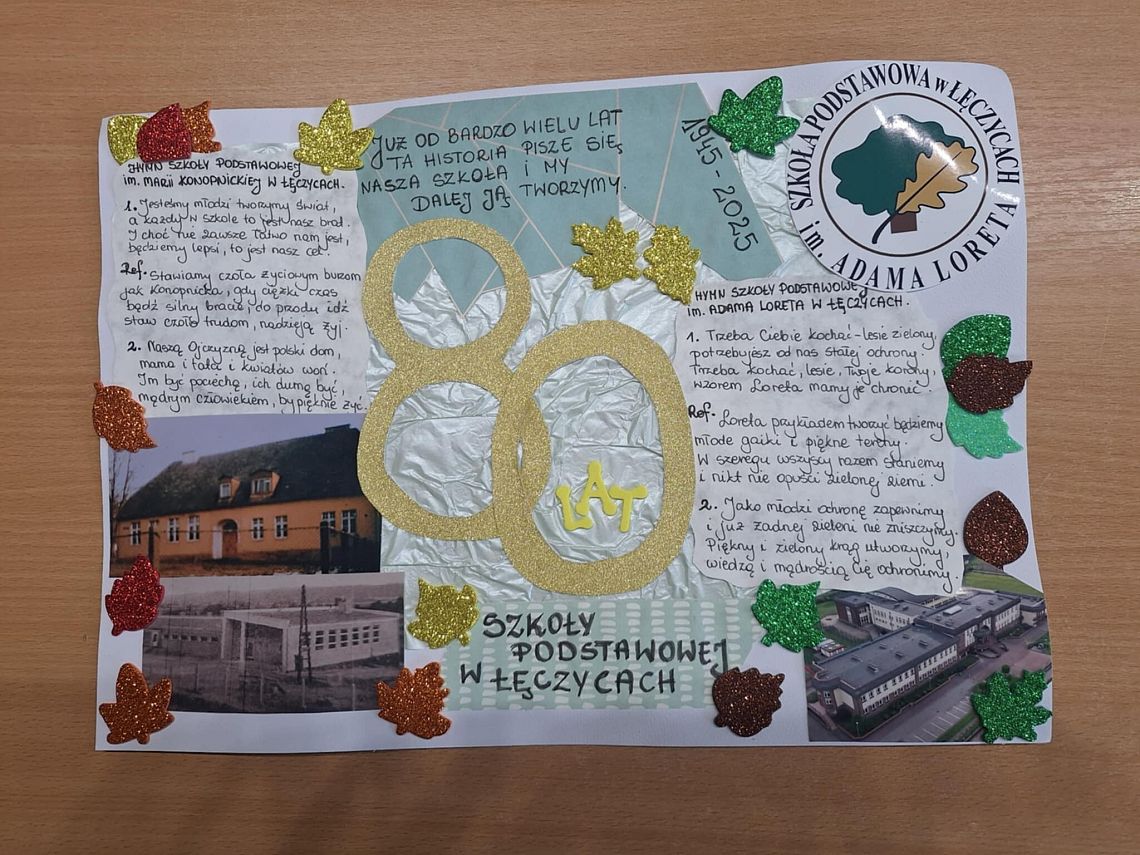 HYMN SZKOŁY PODSTAWOWEJ
im. MARII KONOPNICKIEJ W ŁĘCZYCACH.
1. Jesteśmy młodzi tworzymy świat,
a każdy w szkole to jest nasz brat.
I choć nie zawsze łatwo nam jest,
będziemy lepsi, to jest nasz cel.
Ref. Stawiamy czoła życiowym burzom
jak Konopnicka, gdy ciężki czas
bądź silny bracie, do przodu idź
staw czoło trudom, nadzieją żyj.
2. Naszą Ojczyzną jest polski dom,
mama i tata i kwiatów woń.
Im być pociechą, ich dumą być,
mądrym człowiekiem, by pięknie żyć.
JUŻ OD BARDZO WIELU LAT
TA HISTORIA PISZE SIĘ
NASZA SZKOŁA I MY
DALEJ JĄ TWORZYMY.
1945 - 2025
80
LAT
SZKOŁY
PODSTAWOWEJ
W ŁĘCZYCACH
SZKOŁA PODSTAWOWA w ŁĘCZYCACH
im. ADAMA LORETA
HYMN SZKOŁY PODSTAWOWEJ
im. ADAMA LORETA W ŁĘCZYCACH.
1. Trzeba Ciebie kochać - lesie zielony,
potrzebujesz od nas stałej ochrony.
Trzeba kochać, lesie, Twoje korony,
wzorem Loreta mamy je chronić.
Ref. Loreta przykładem tworzyć będziemy
młode gaiki i piękne tereny.
W szeregu wszyscy razem staniemy
i nikt nie opuści zielonej ziemi.
2. Jako młodzi ochronę zapewnimy
i już żadnej zieleni nie zniszczymy.
Piękny i zielony krąg utworzymy,
wiedzą i mądrością Cię ochronimy.